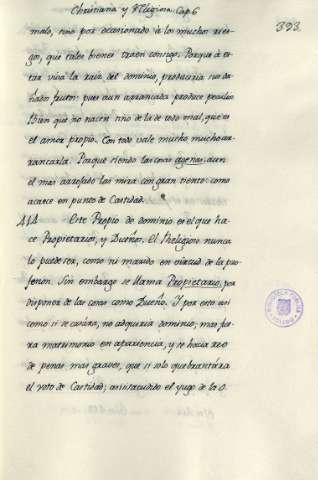 Christiana y Religiosa Cap. 6
393.
malo, sino por ocasionado à los muchos ries-
gos, que tales bienes traen consigo. Porque à es-
tar viva la raiz del dominio, produciria sus da-
ñados frutos: pues aun arrancada produce pecados
Bien que no nacen sino de la de todo mal, que es
el amor propio. Con todo vale mucho mucho ar-
rancarla. Porque siendo las cosas agenas: aun
el mas arrojado las mira con gran tiento: como
acaece en punto de Castidad.
414 Este Propio de dominio es el que ha-
ce Propietarios, y Dueños. El Religioso nunca
lo puede ser, como ni marido en virtud de la pro-
fesion. Sin embargo se llama Propietario, por
disponer de las cosas como Dueño. Y por esto asi
como si se casàra, no adquiria dominio, mas
matrimonio en apariencia, y se hacia reo
de penas mas graves, que si solo quebrantára
el voto de Castidad; asi sacudido el yugo de la O.